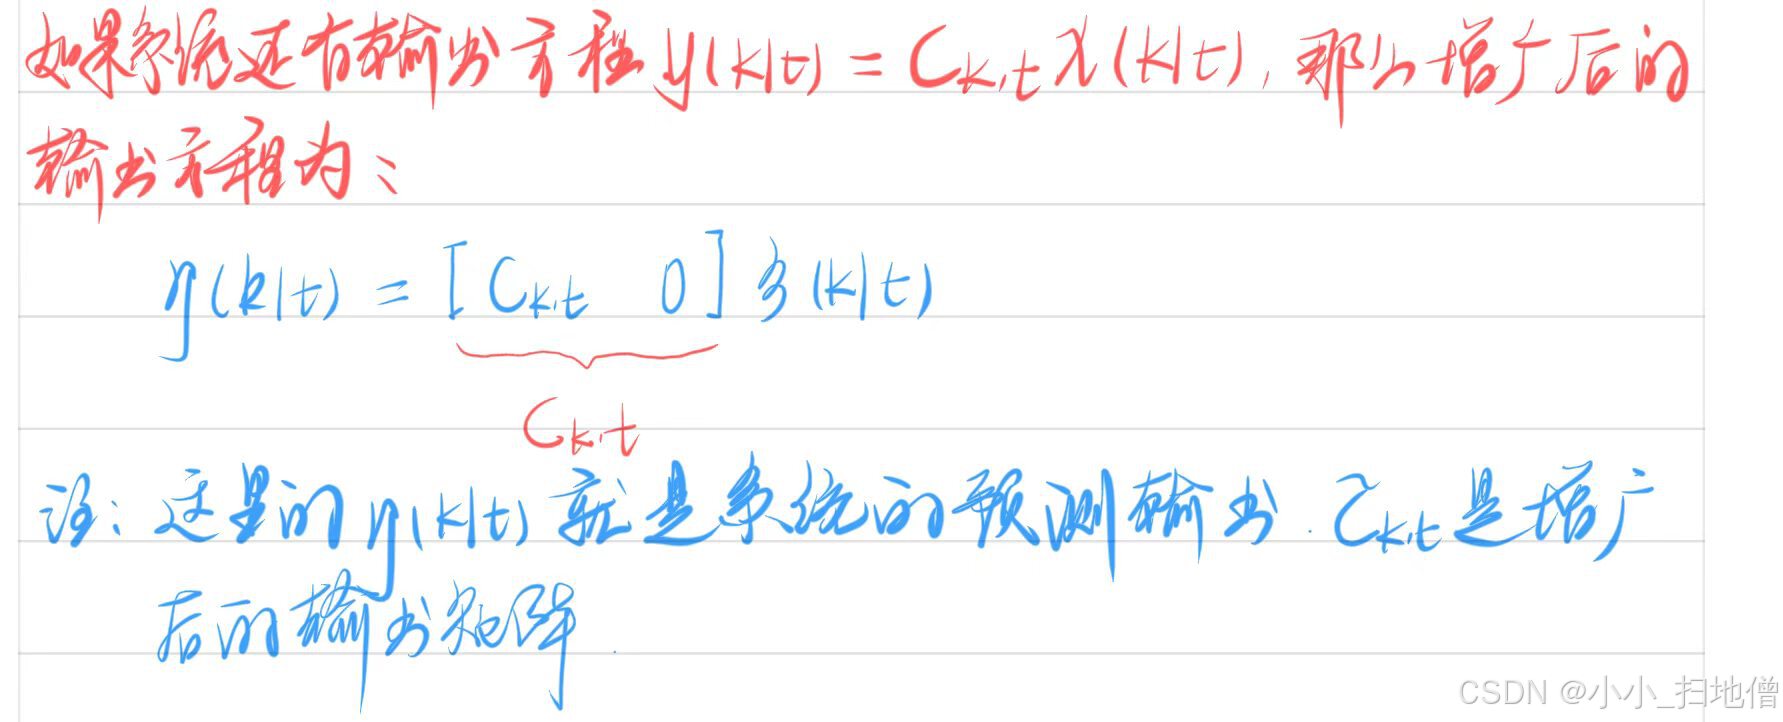 如果系统还有输出方程 y(k|t) = C_{k,t} x(k|t), 那么增广后的
输出方程为:
η(k|t) = [C_{k,t} 0] ξ(k|t)
C_{k,t}
注: 这里的 η(k|t) 就是系统的预测输出. C̃_{k,t} 是增广
后的输出矩阵.
CSDN @小小_扫地僧